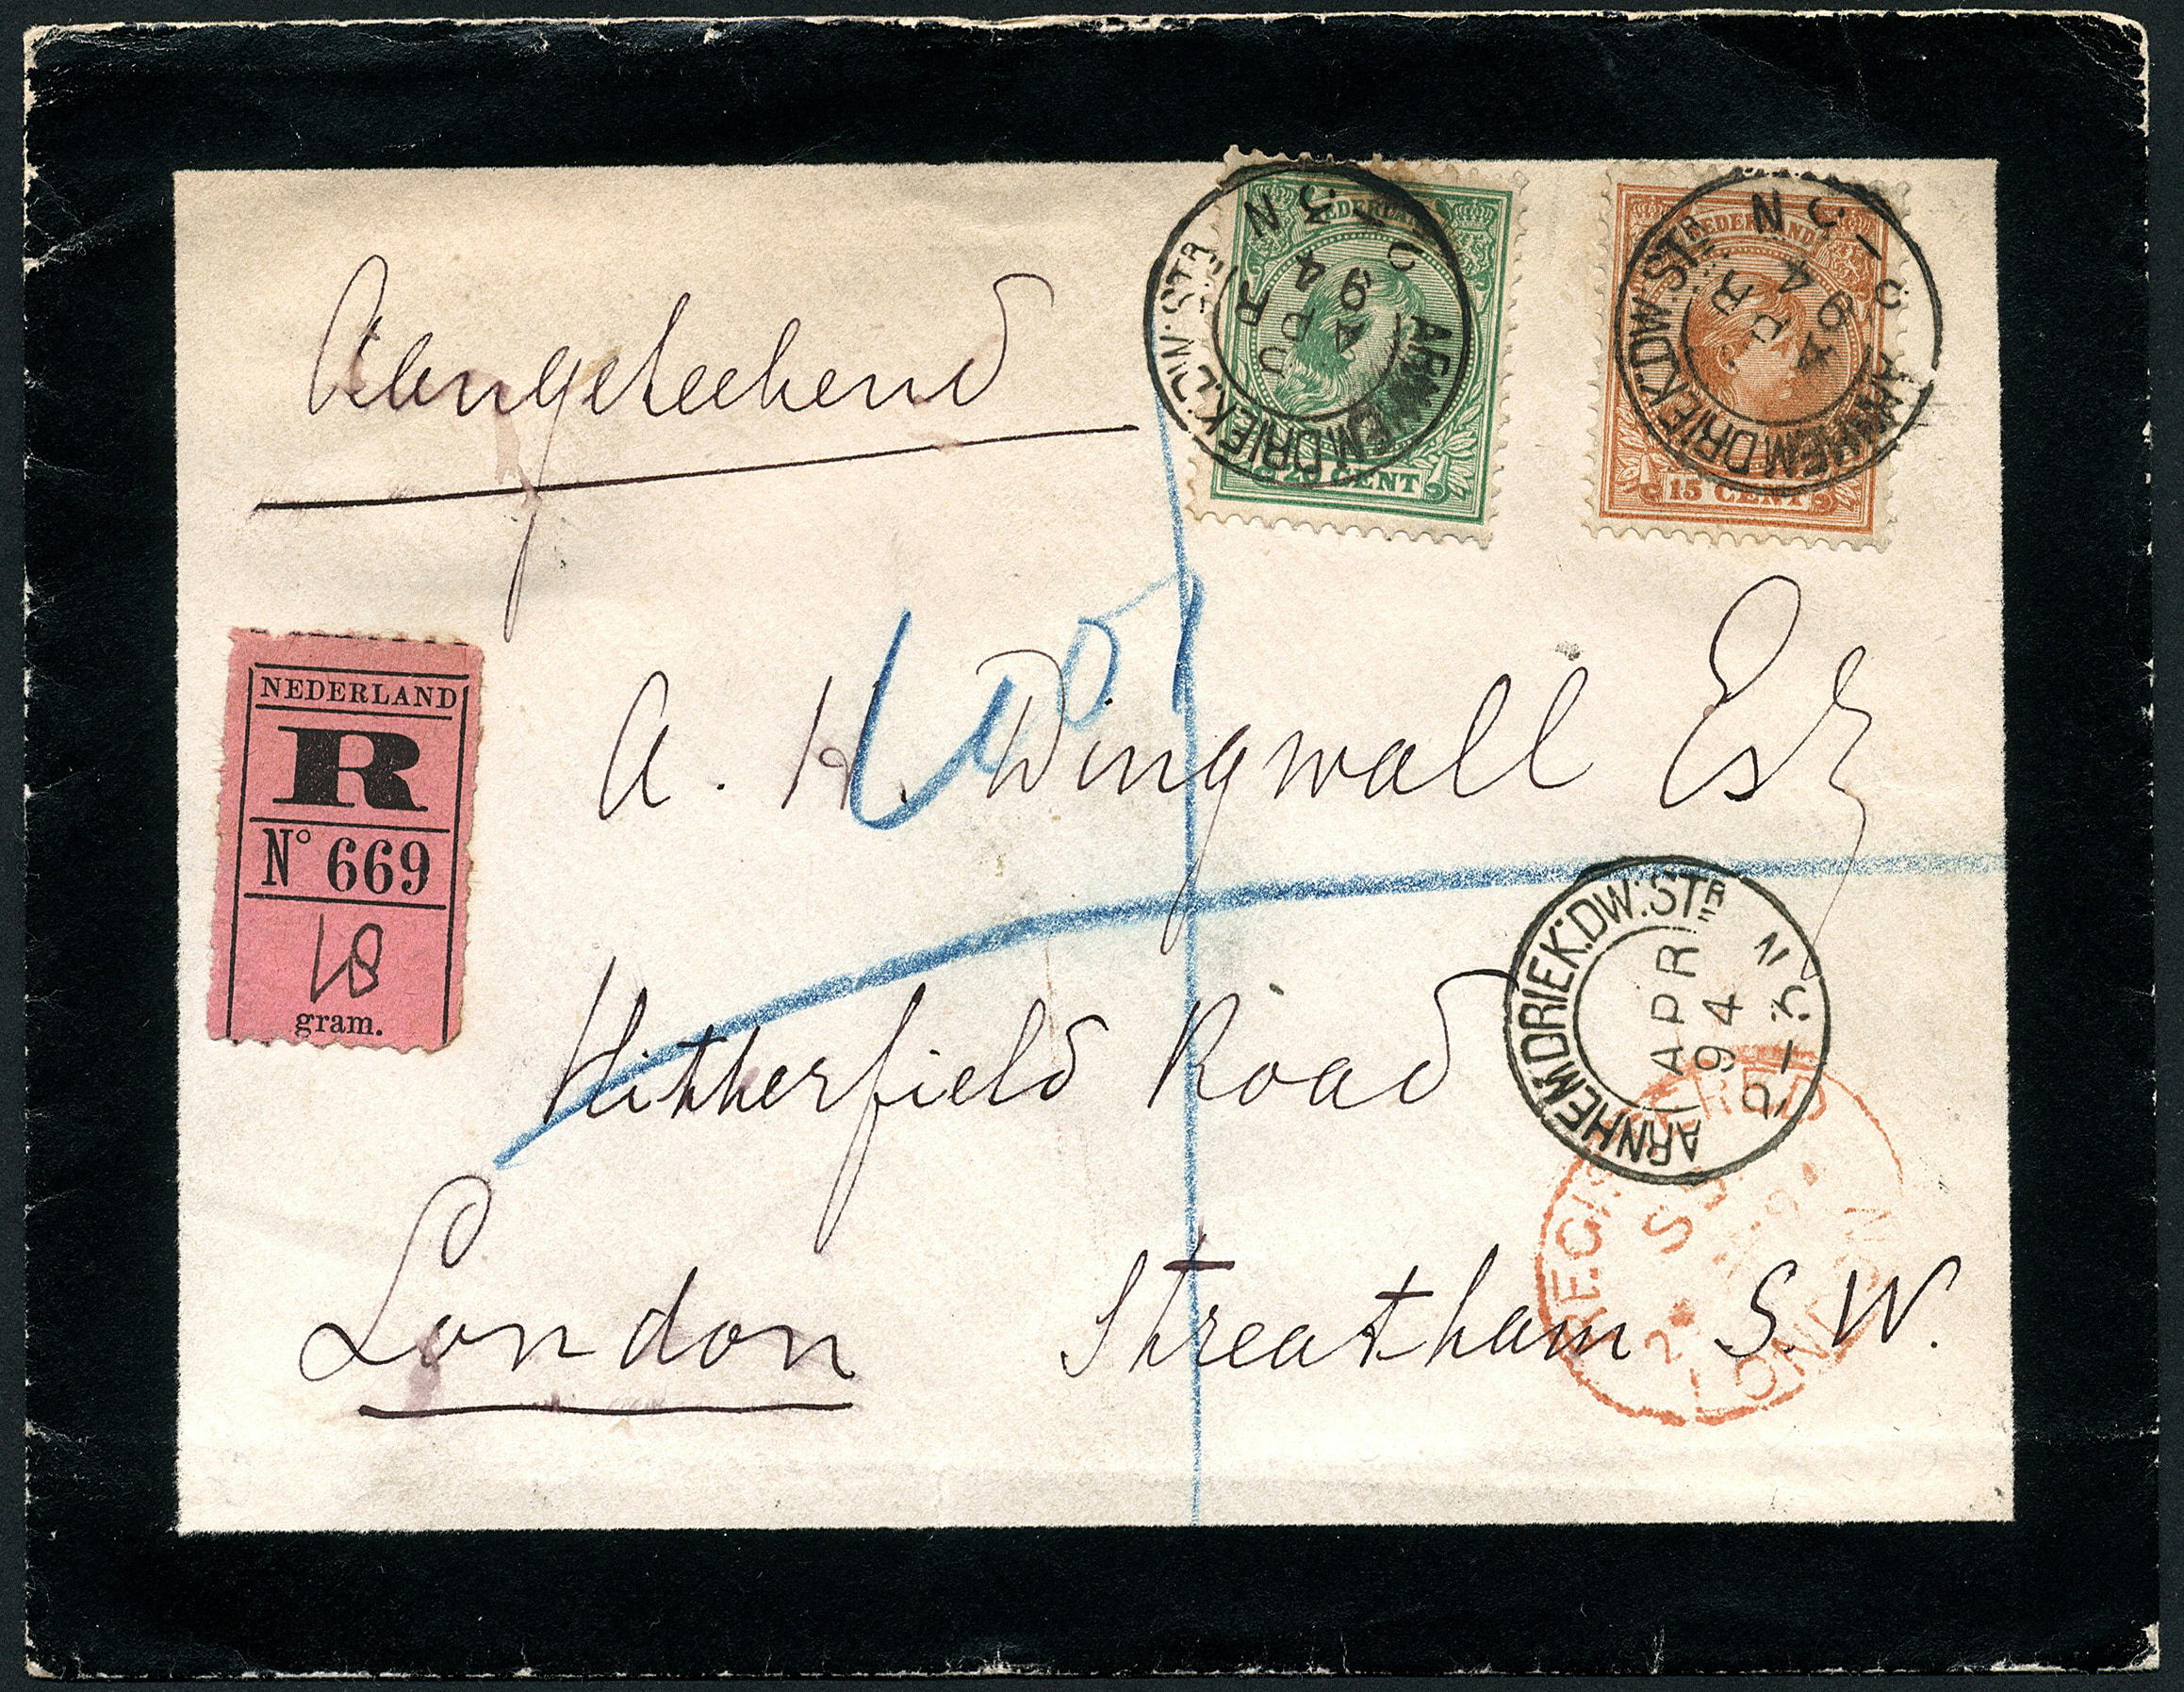 NEDERLAND
20 CENT
ARNHEM DRIEK: DW: STR
APR
94
3 N
NEDERLAND
15 CENT
ARNHEM DRIEK: DW: STR
APR
94
N
Aangeteekend
NEDERLAND
R
No 669
18
gram.
A. H. Dingwall Esq
Hitherfield Road
ARNHEM DRIEK: DW: STR
APR
94
N
London Streatham S.W.
REGISTERED
LONDON